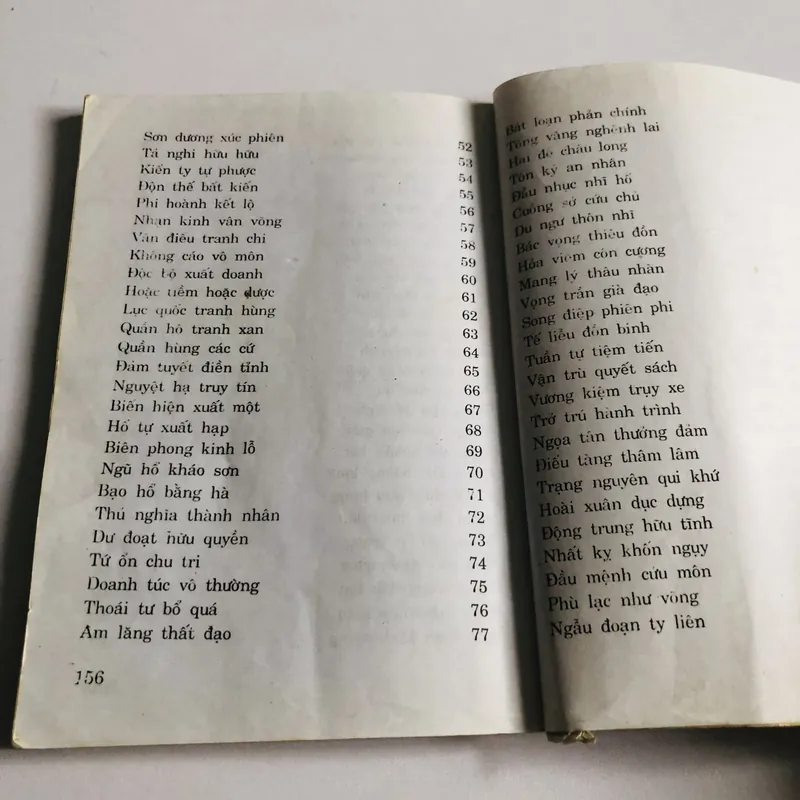 Sơn dương xúc phiên 52
Tá nghi hữu hữu 53
Kiển ty tự phược 54
Độn thế bất kiến 55
Phi hoành kết lộ 56
Nhạn kinh vân võng 57
Vân điêu tranh chi 58
Khổng cáo vô môn 59
Độc bộ xuất doanh 60
Hoặc tiềm hoặc dược 61
Lục quốc tranh hùng 62
Quán hô tranh xan 63
Quần hùng các cứ 64
Đảm tuyết điền tỉnh 65
Nguyệt hạ truy tín 66
Biên hiện xuất một 67
Hổ tự xuất hạp 68
Biên phong kinh lỗ 69
Ngũ hổ kháo sơn 70
Bạo hổ bằng hà 71
Thủ nghĩa thành nhân 72
Dư đoạt hữu quyền 73
Tứ ổn chu tri 74
Doanh túc vô thường 75
Thoái tư bổ quá 76
Am lăng thất đạo 77
156
Bát loạn phản chính
Tống vãng nghênh lai
Hải để châu long
Tôn kỷ an nhân
Đầu nhục nhĩ hổ
Cuồng sở cứu chủ
Du ngư thôn nhĩ
Bác vọng thiêu đồn
Hỏa viêm côn cương
Mang lý thâu nhàn
Vọng trần già đạo
Song điệp phiên phi
Tế liễu đồn binh
Tuần tự tiệm tiến
Vận trù quyết sách
Vương kiệm trụy xe
Trở trú hành trình
Ngọa tân thưởng đảm
Điếu tàng thâm lâm
Trạng nguyên qui khứ
Hoài xuân dục dựng
Động trung hữu tĩnh
Nhất kỵ khốn ngụy
Đầu mệnh cứu môn
Phù lạc như võng
Ngẫu đoạn ty liên